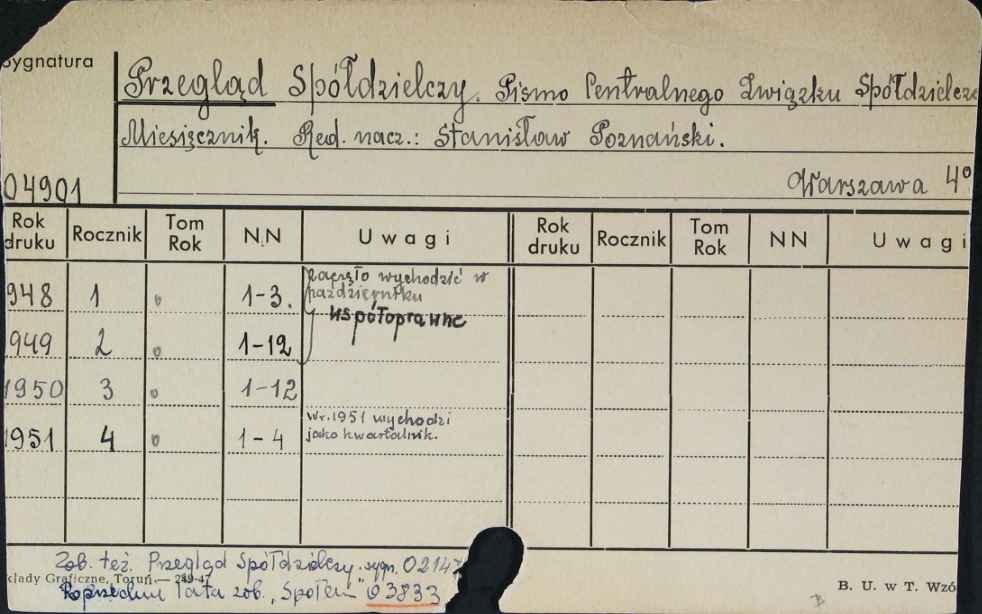 Sygnatura
Przegląd Spółdzielczy. Pismo Centralnego Związku Spółdzielcze
Miesięcznik. Red. nacz.: Stanisław Poznański.
04901 Warszawa 4°
Rok druku Rocznik Tom Rok N.N Uwagi Rok druku Rocznik Tom Rok NN Uwagi
948 1 0 1-3. zaczęło wychodzić w
październiku
współoprawne
949 2 0 1-12
1950 3 0 1-12
1951 4 0 1-4 W r. 1951 wychodzi
jako kwartalnik.
Zob. też. Przegląd Spółdzielczy sygn. 02147
kłady Graficzne, Toruń — 289-47
Poprzednie lata zob. „Społem" 03833
B. U. w T. Wzó